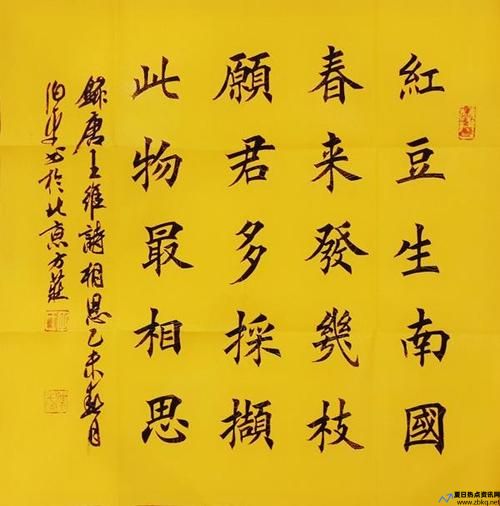 紅豆生南國
春来發幾枝
願君多採擷
此物最相思
錄唐王維詩相思乙未春月
於北京方莊
夏日热点资讯网
www.zbkq.net